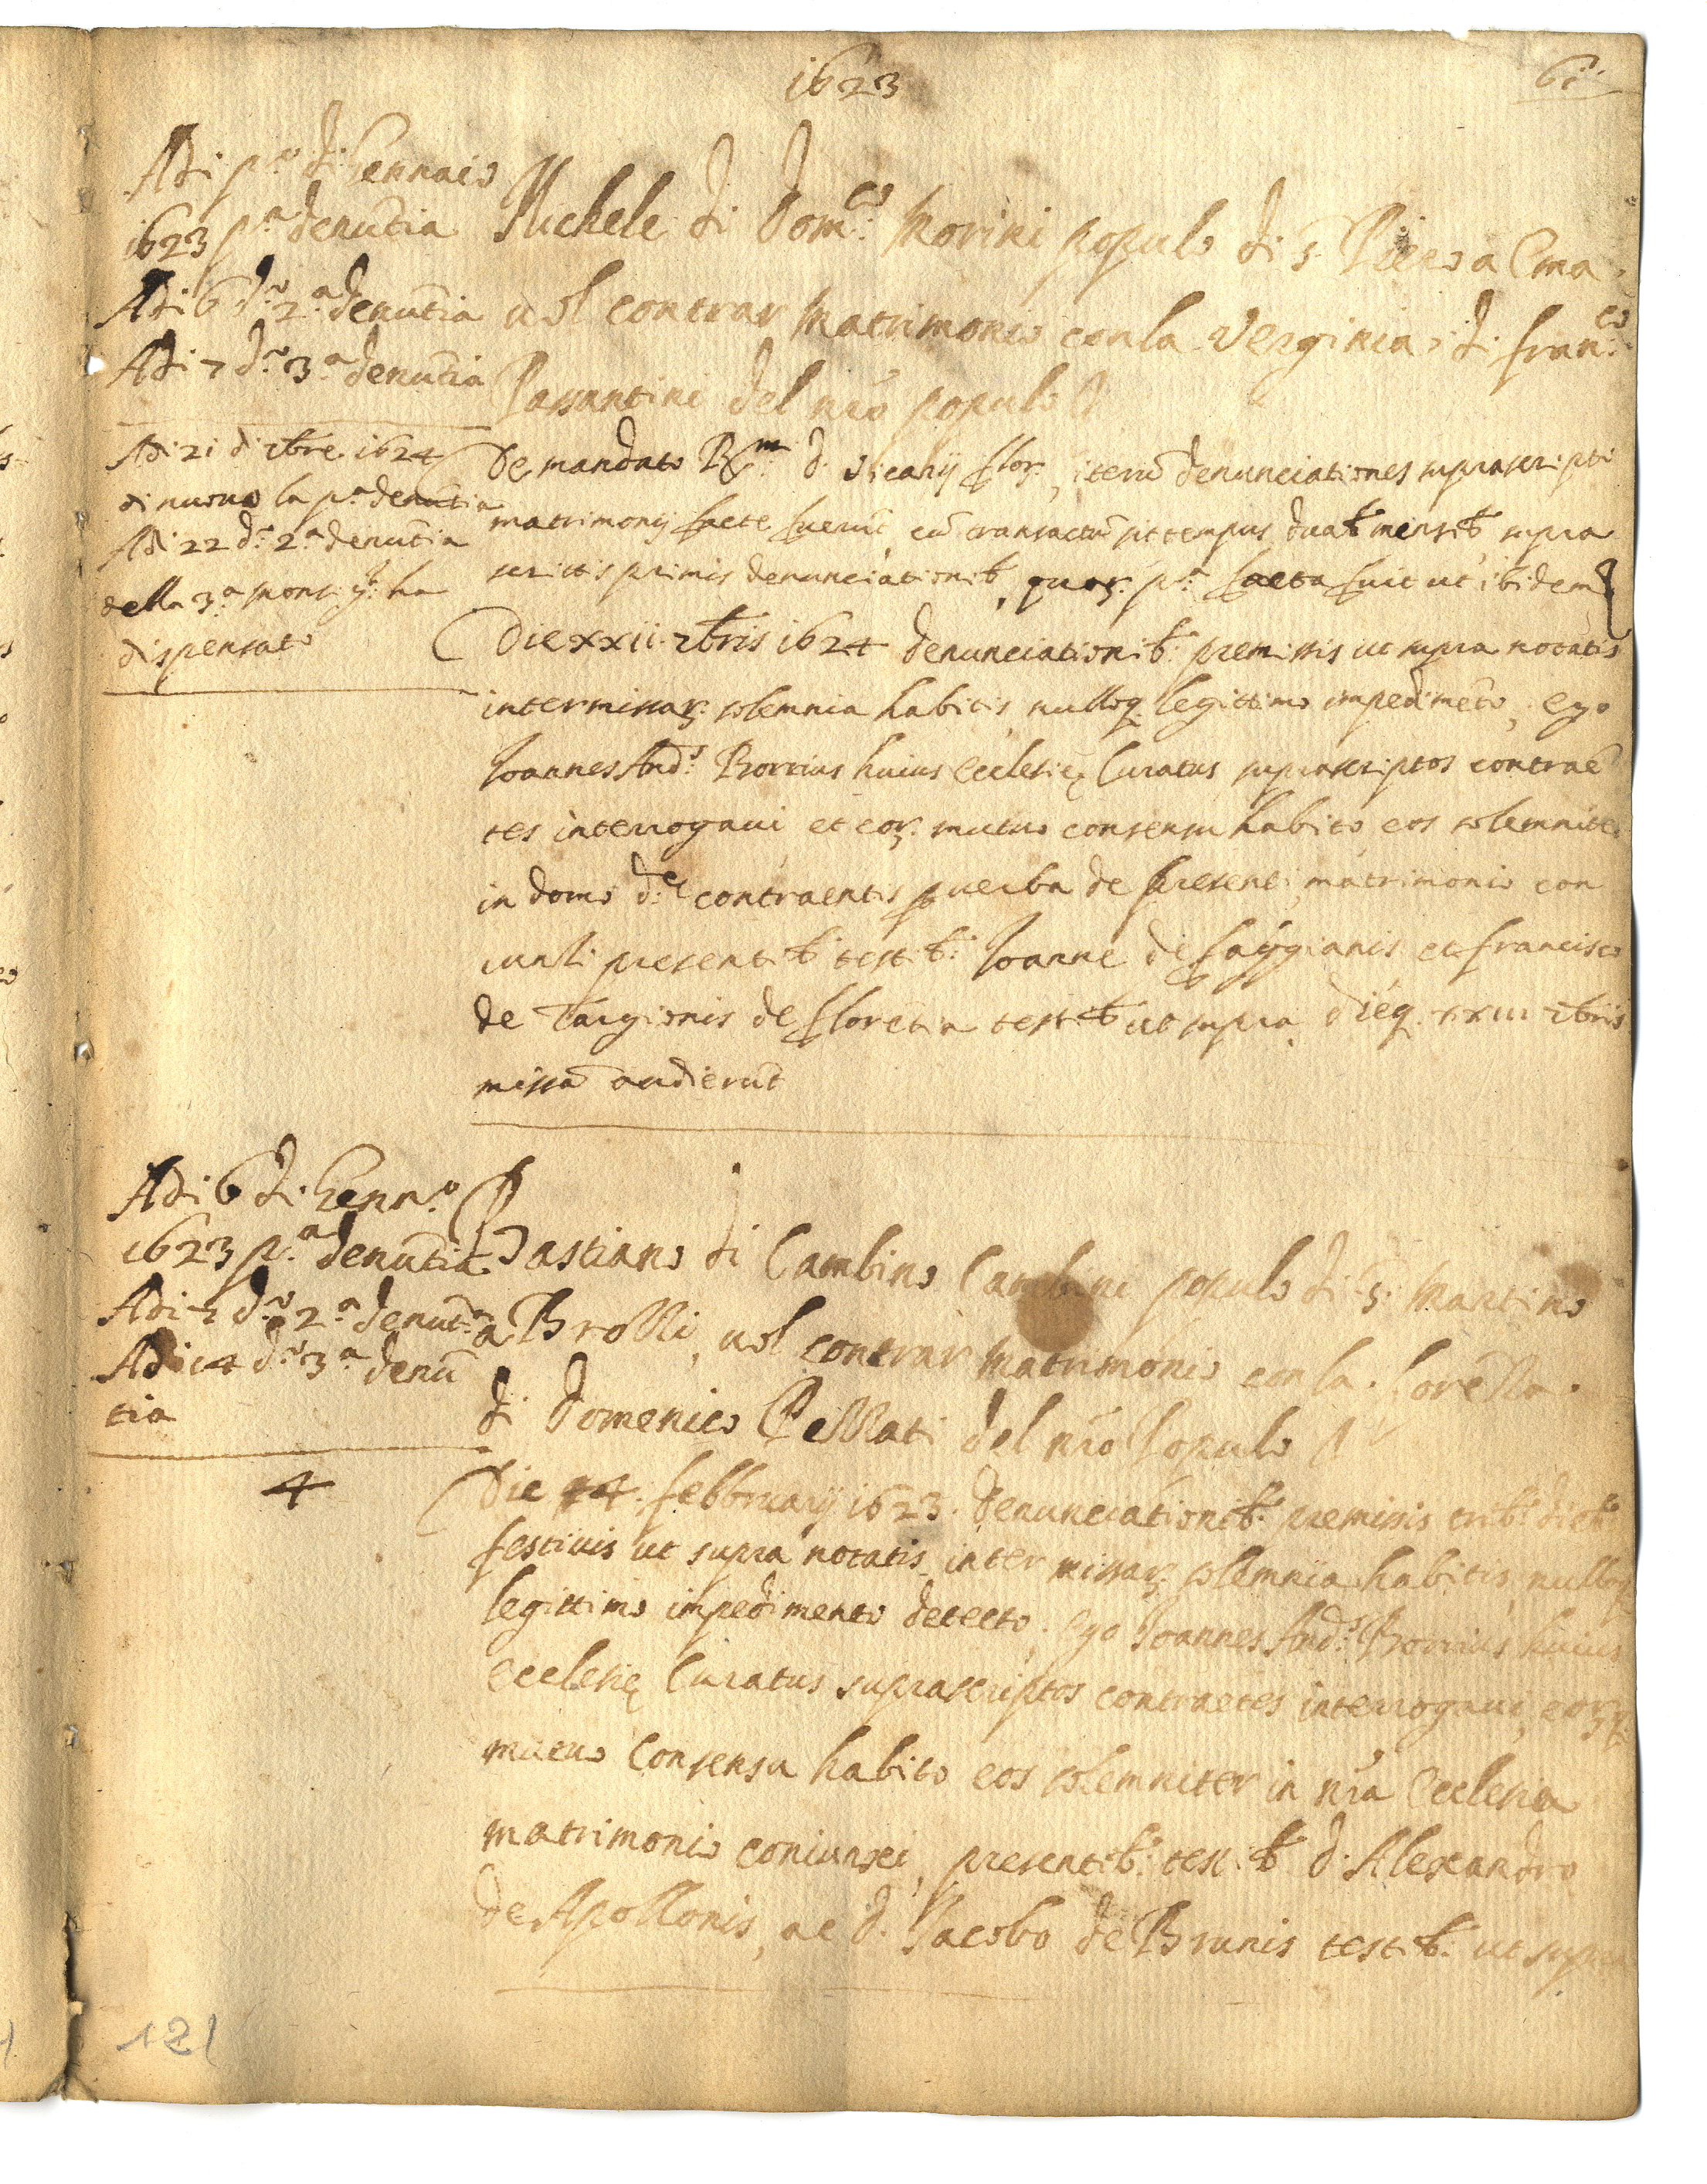 1623
61
Adi p.º di Gennaio
1623 p.ª denũtia
Adi 6 d.º 2.ª denũtia
Adi 7 d.º 3.ª denũtia
Michele di Dom.co Morini populo di S. Piero a Ema
uol contrar matrimonio con la Verginia di Fran.co
Passantini del nr̃o populo
Adi 21 di xbre 1624
di nuouo la p.ª denũtia
Adi 22 d.º 2.ª denũtia
della 3.ª Mons.r ha
dispensato
De mandato R.mi d. Vicarij Flor., iterũ denunciationes suprascripti
matrimonij facte fuerũt, cũ transactũ sit tempus duab. mensib. supra
scrittis primis denunciationib., quar. p.ª facta fuit ut ibidem
Die xxii xbris 1624 denunciationib. premissis ut supra notatis
inter missar. solemnia habitis, nulloq. legittimo impedimẽto, ego
Ioannes And.s Borrius huius Ecclesię Curatus suprascriptos contraẽ
tes interrogaui et eor. mutuo consensu habito eos solemniter
in domo d.e contraentis p uerba de presenti matrimonio con
iunsi presentib. testib. Ioanne de Faggianis et Francisco
de Targionis de Florẽtia testib. ut supra, dieq. xxiii xbris
missã audierũt
Adi 6 di Genn.o
1623 p.ª denũtia
Adi 7 d.º 2.ª denũt.ª
Adi 14 d.º 3.ª denũ
tia
Bastiano di Cambino Cambini populo di S. Martino
a Brolli, uol contrar matrimonio con la Lorẽza
di Domenico Pessati del nr̃o Populo
4
Die 14 Febbruarij 1623. denunciationib. premissis trib. dieb.
festiuis ut supra notatis inter missar. solemnia habitis, nulloq.
legittimo impedimento detecto, ego Ioannes And.s Borrius huius
Ecclesię Curatus suprascriptos contraetes interrogaui, eorq.
mutuo Consensu habito eos solemniter in nr̃a Ecclesia
matrimonio coniunxi, presentib. testib. d. Alexandro
de Apollonis, ac d. Iacobo de Brunis testib. ut supra
121